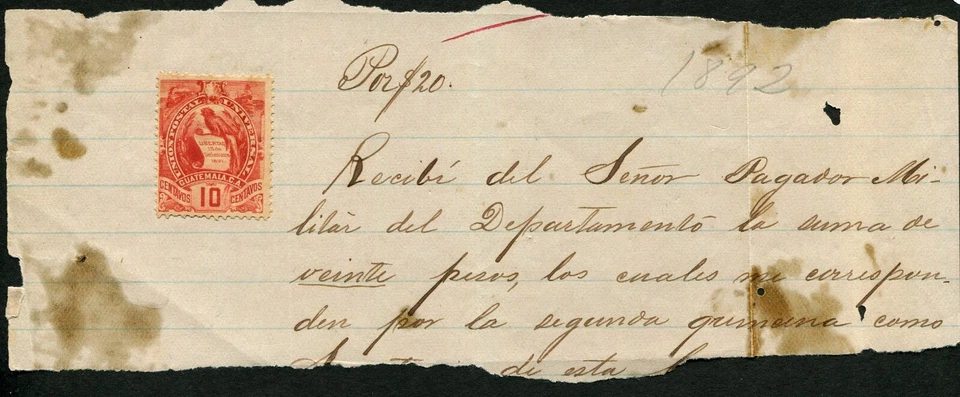 Por $20.
1892
UNION POSTAL UNIVERSAL
LIBERTAD
15 DE
Setiembre
1821
GUATEMALA C.A.
CENTAVOS 10 CENTAVOS
Recibí del Señor Pagador Mi-
litár del Departamentó la suma de
veinte pesos, los cuales me correspon-
den por la segunda quincena como
de esta